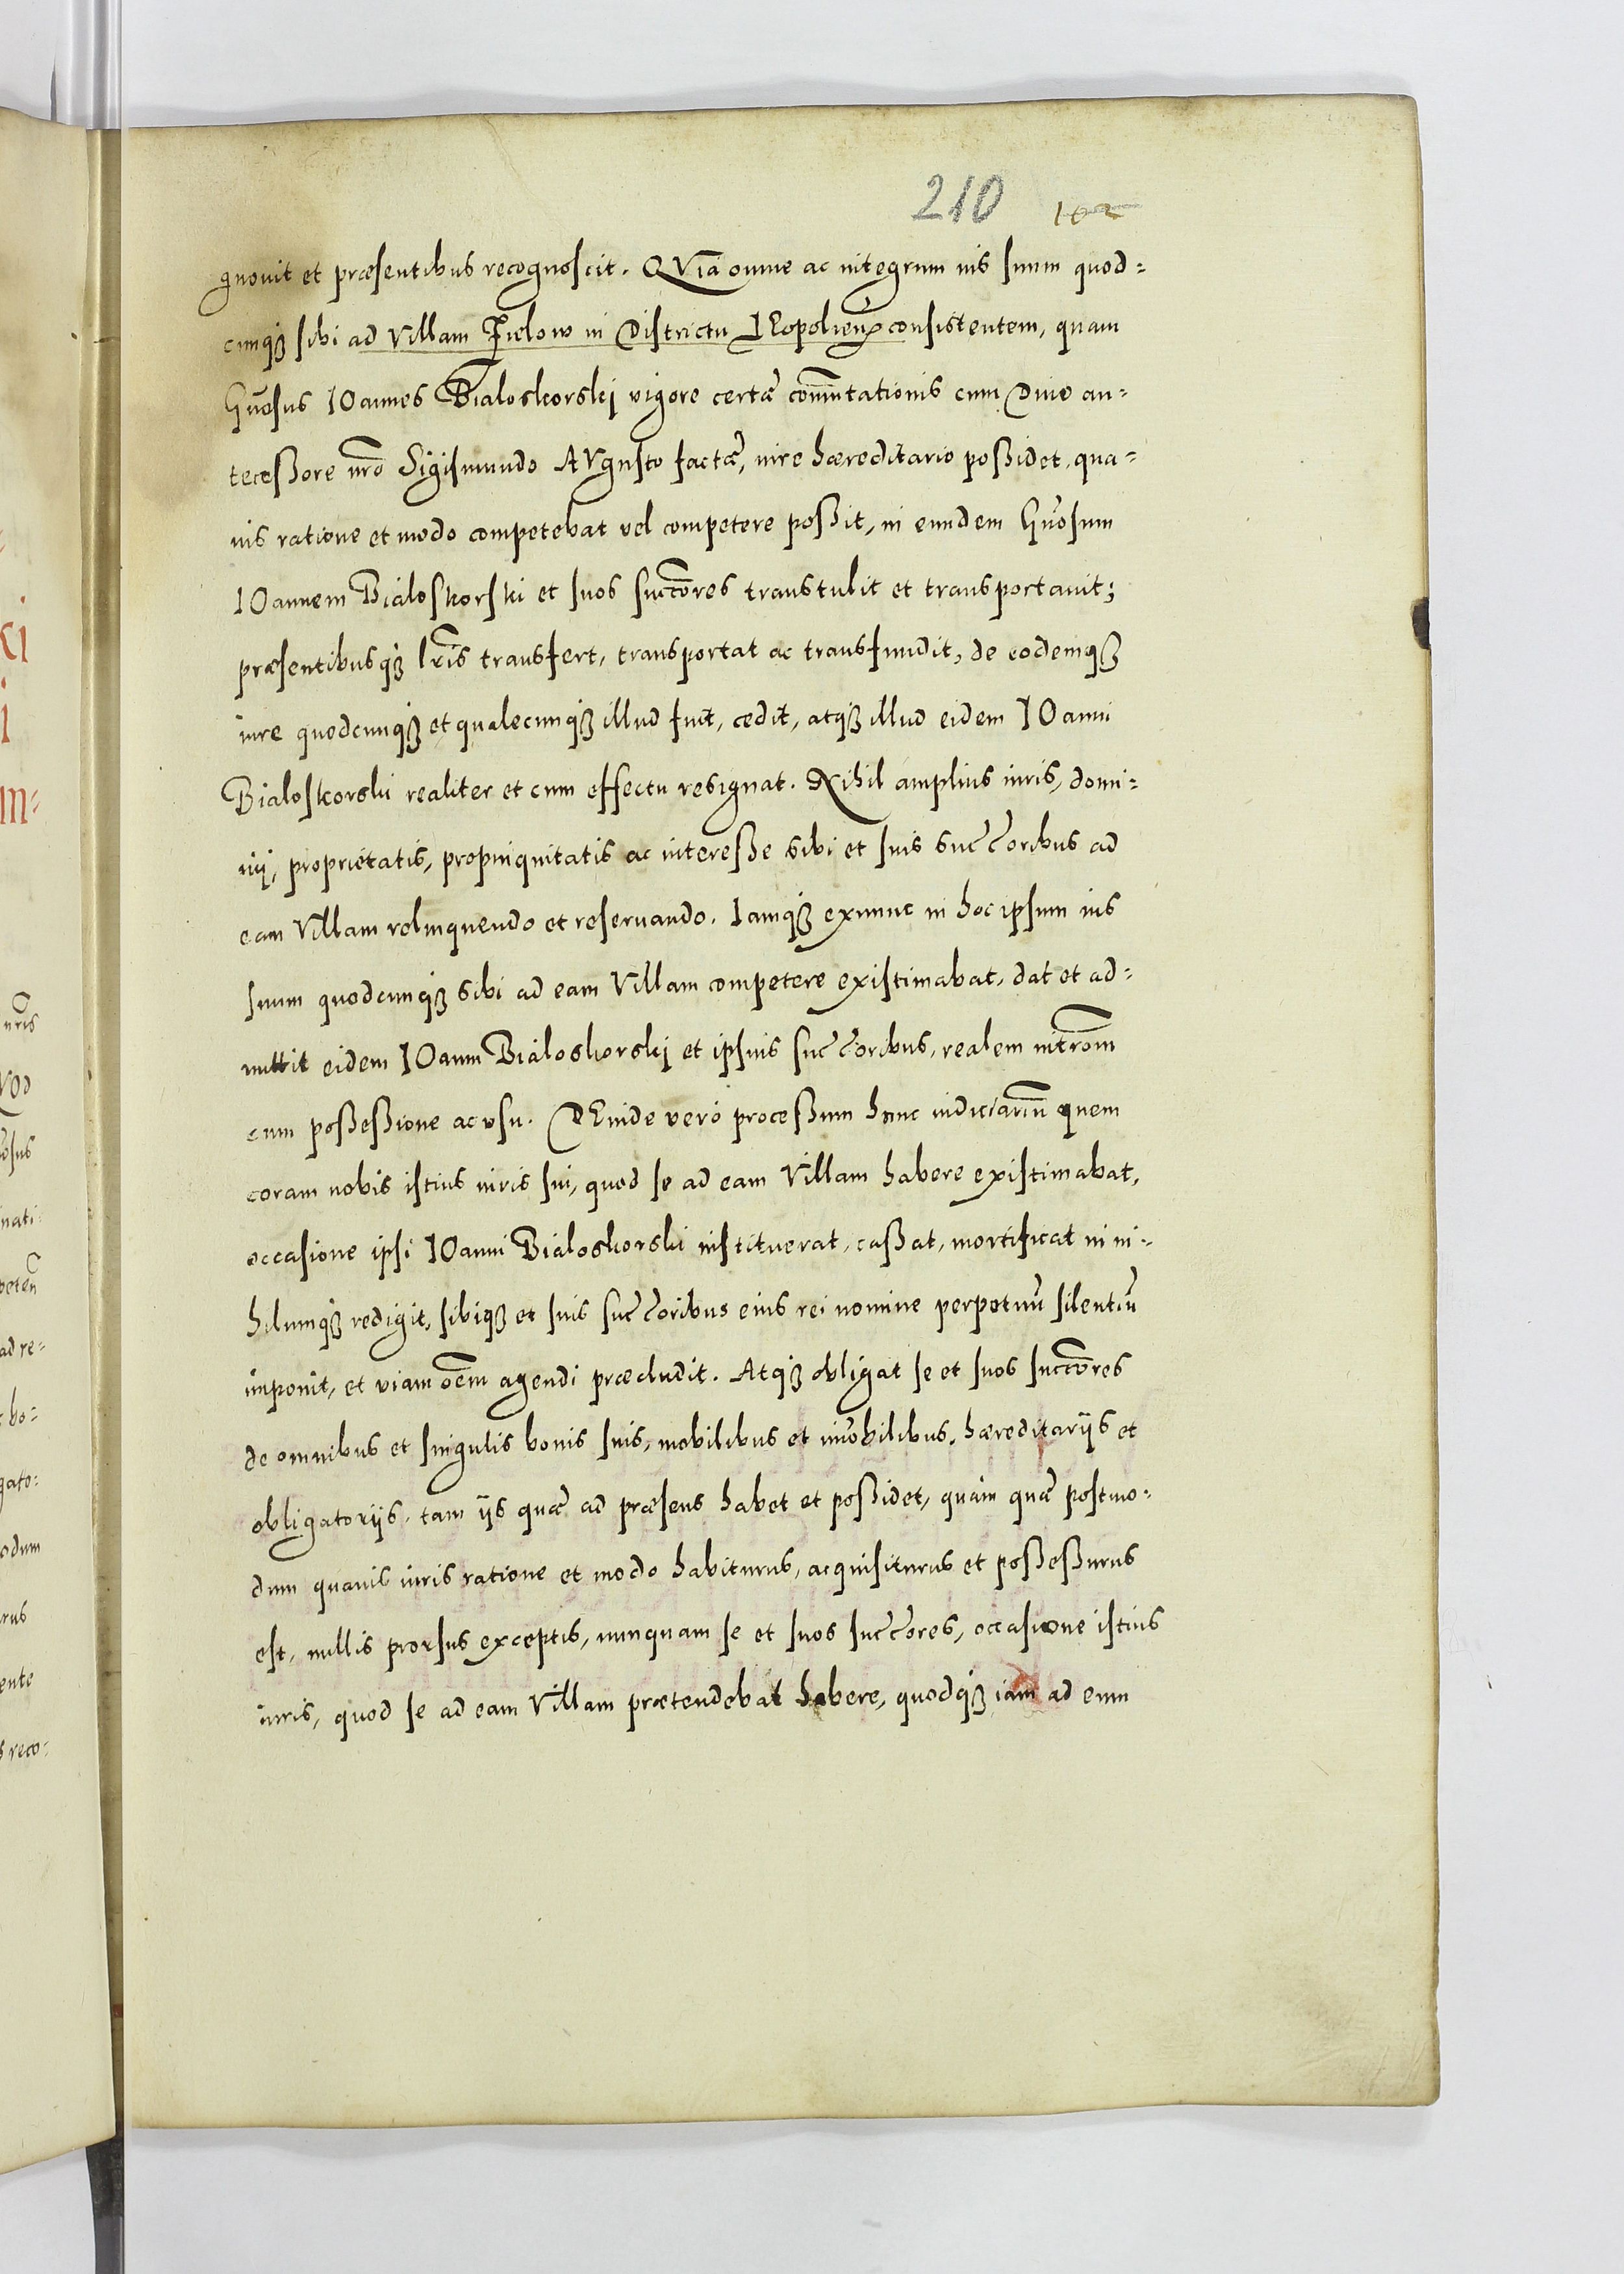 210 102
gnouit et præsentibus recognoscit. QVia omne ac integrum ius suum quod=
cunq₃ sibi ad Villam Zielow in Districtu LEopolieñ consistentem, quam
Gñosus IOannes Bialoskorskj vigore certæ com̃utationis cum Diuo an=
teceßore nr̃o Sigismundo AVgusto factæ, iure hæreditario poßidet, qua=
uis ratione et modo competebat vel competere poßit, in eundem Gñosum
IOannem Bialoskorski et suos succ̃ores transtulit et transportauit;
præsentibusq₃ lr̃is transfert, transportat ac transfundit, de eodemq₃
iure quodcunq₃ et qualecunq₃ illud fuit, cedit, atq₃ illud eidem IOanni
Bialoskorski realiter et cum effectu resignat. Nihil amplius iuris, domi=
nij, proprietatis, propinquitatis ac intereße sibi et suis succ̃oribus ad
eam Villam relinquendo et reseruando. Iamq₃ exnunc in hoc ipsum ius
suum quodcunq₃ sibi ad eam Villam competere existimabat, dat et ad=
mittit eidem IOanni Bialoskorskj et ipsius succ̃oribus, realem introm̃
cum poßeßione ac vsu. DEinde vero proceßum hunc iudiciariũ quem
coram nobis istius iuris sui, quod se ad eam Villam habere existimabat,
occasione ipsi IOanni Bialoskorski instituerat, caßat, mortificat in ni=
hilumq₃ redigit, sibiq₃ et suis succ̃oribus eius rei nomine perpetuũ silentiũ
imponit, et viam õem agendi præcludit. Atq₃ obligat se et suos succ̃ores
de omnibus et singulis bonis suis, mobilibus et im̃obilibus, hæreditarijs et
obligatorijs, tam ijs quæ ad præsens habet et poßidet, quàm quæ postmo=
dum quauis iuris ratione et modo habiturus, acquisiturus et poßeßurus
est, nullis prorsus exceptis, nunquam se et suos succ̃ores, occasione istius
iuris, quod se ad eam Villam prætendebat habere, quodq₃ iam ad eum